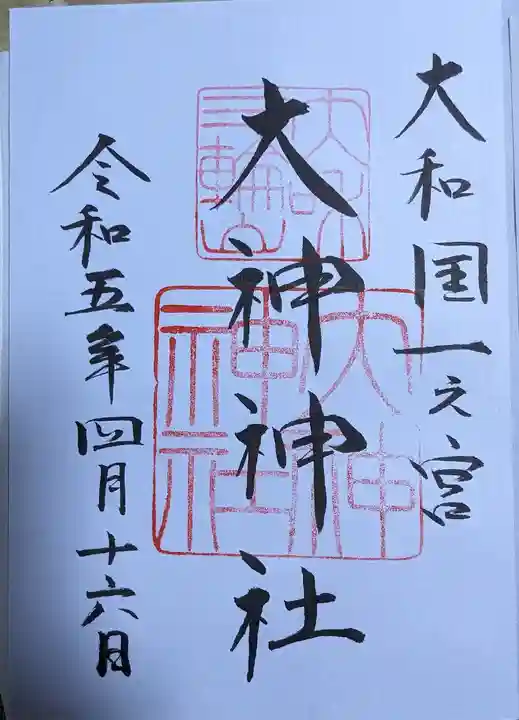 大和国一之宮
大神神社
令和五年四月十六日
大神神社